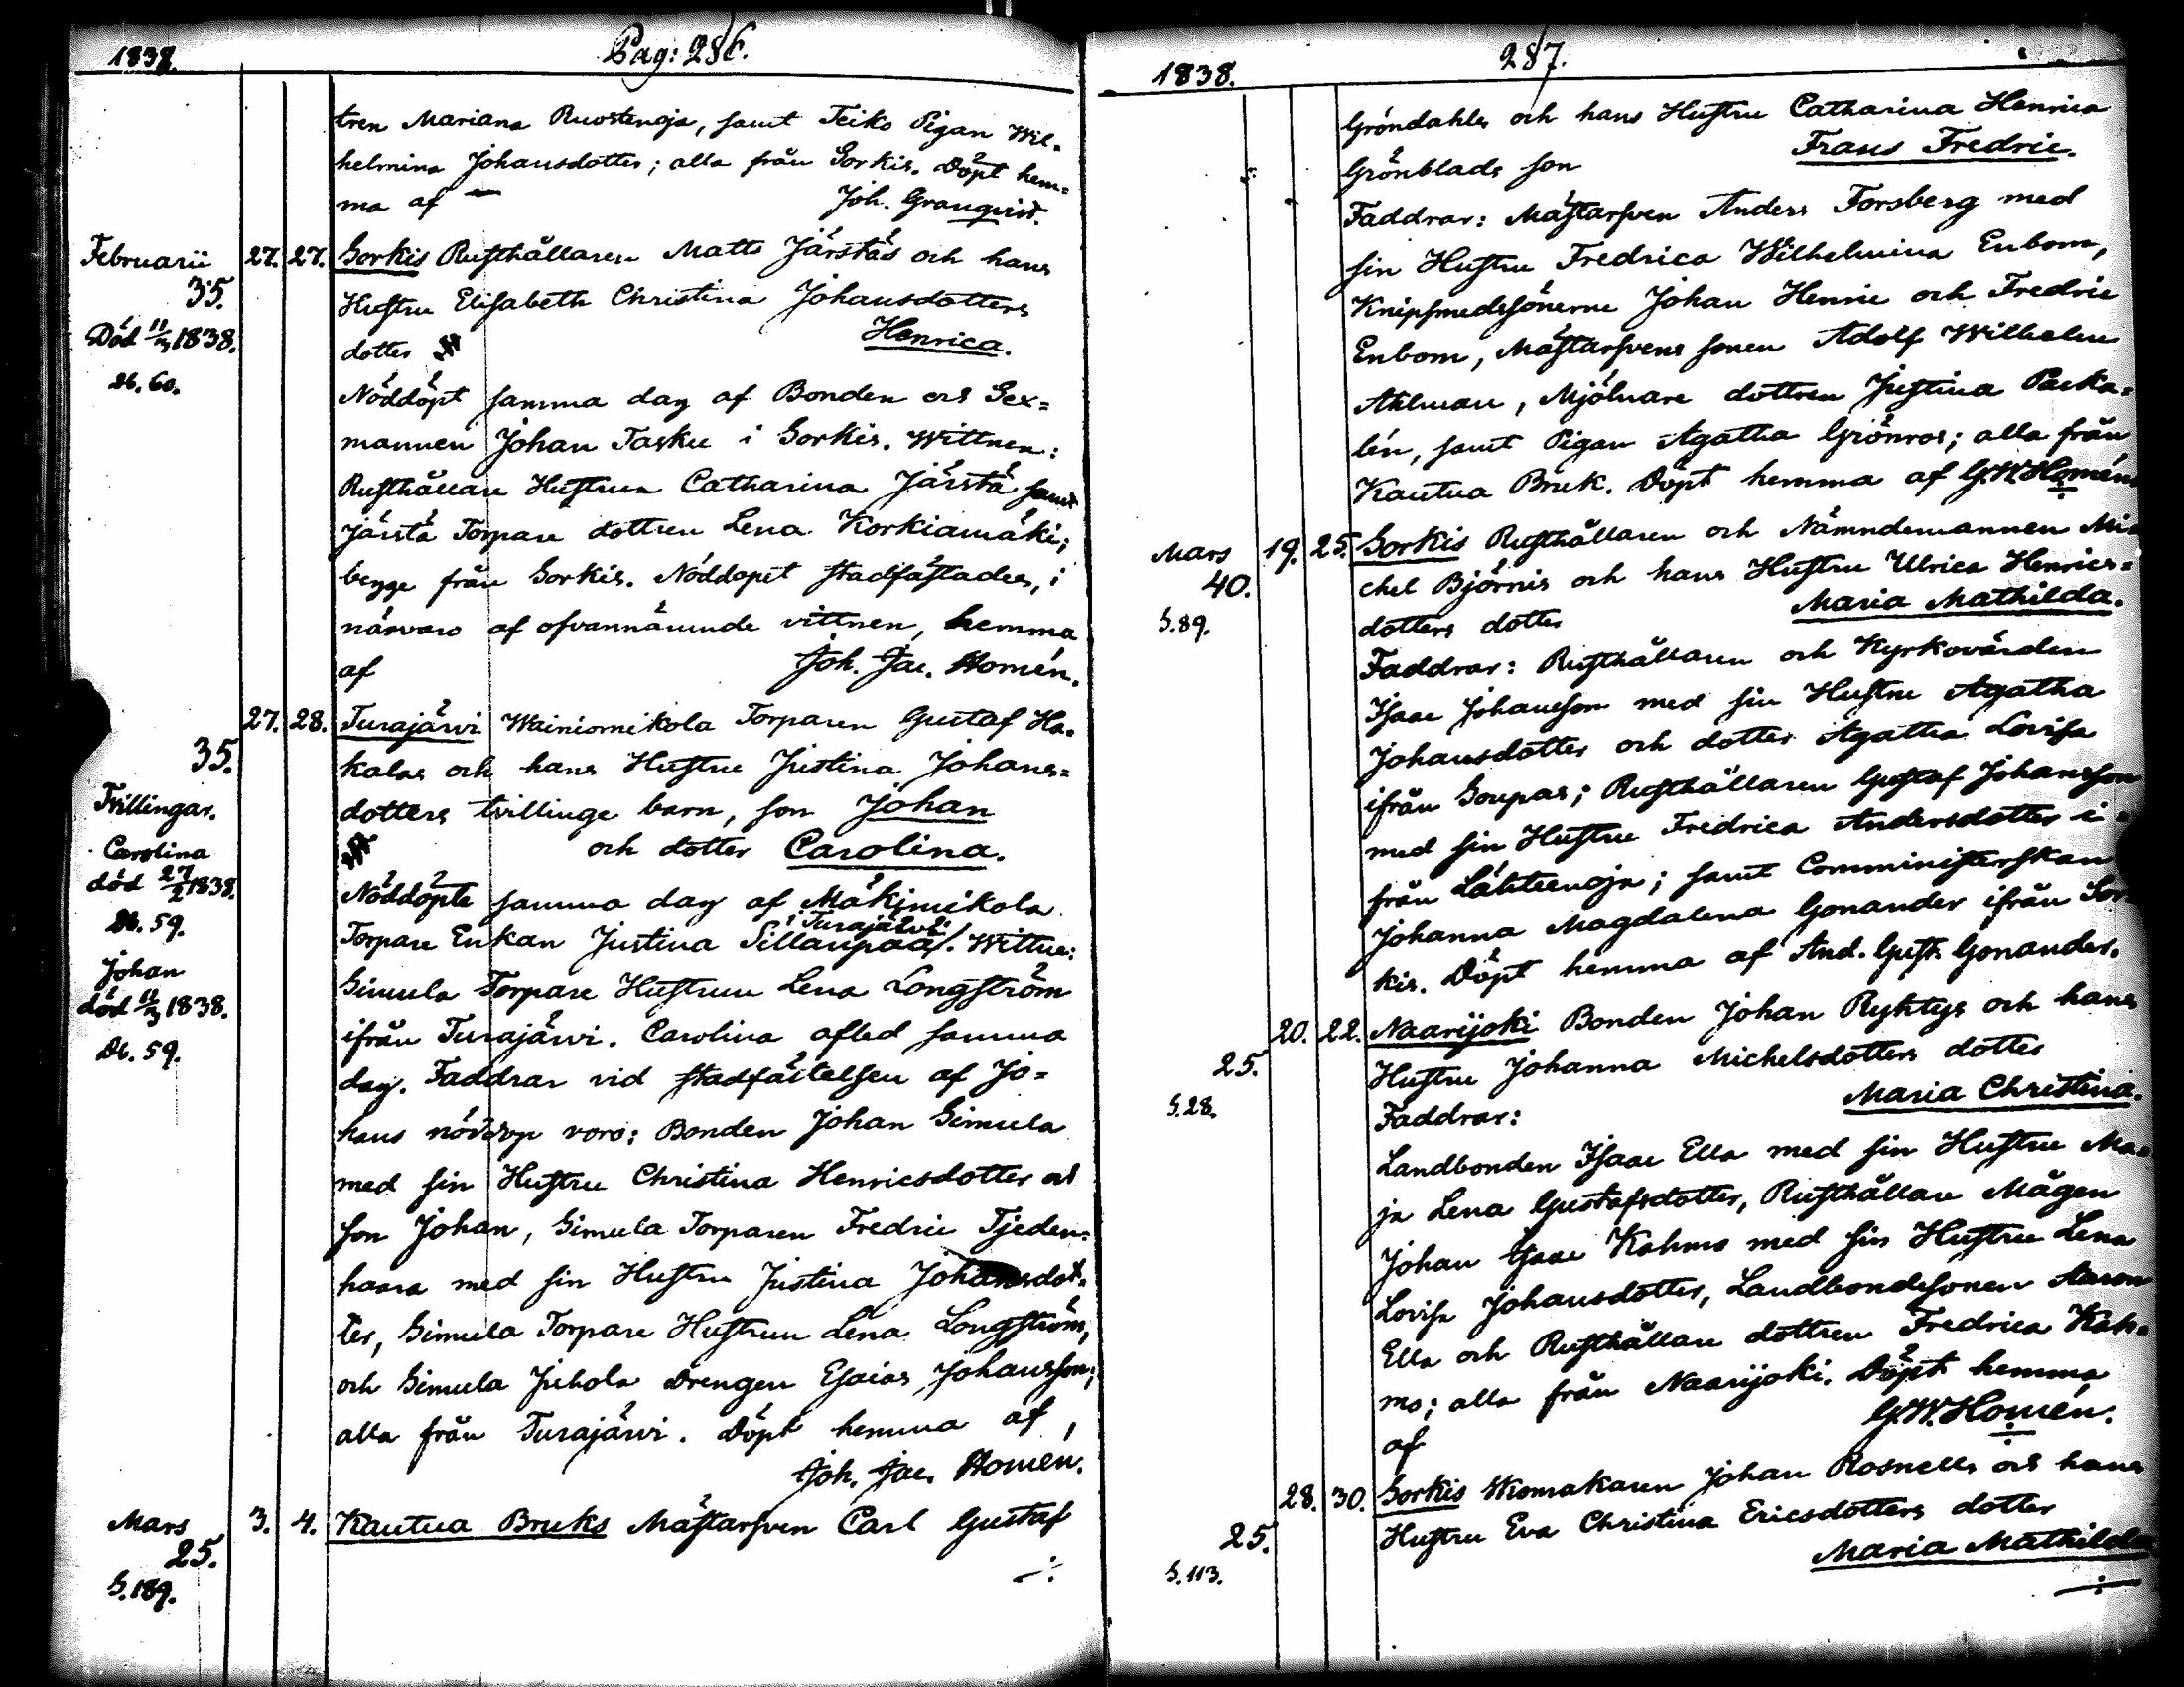 1838.
Pag: 286.
tren Mariana Ruostenoja, samt Teiko Pigan Wil-
helmina Johansdotter; alla från Sorkis. Döpt hem=
ma af Joh. Granqvist.
Februarii 27. 27. Sorkis Rusthållaren Matts Järstäs och hans
35. Hustru Elisabeth Christina Johansdotters
Död 11/3 1838. dotter Henrica.
Db. 60.
Nöddöpt samma dag af Bonden och Sex=
mannen Johan Tasku i Sorkis. Wittnen:
Rusthållare Hustrun Catharina Järstä samt
Järstä Torpare dottren Lena Korkiamäki;
begge från Sorkis. Nöddopet stadfästades, i
närvaro af ofvannämnde vittnen, hemma
af Joh. Jac. Homén.
27. 28. Turajärvi Wainiomikola Torparen Gustaf Ha-
35. kalas och hans Hustru Justina Johans=
Tvillingar. dotters tvillinge barn, son Johan
Carolina och dotter Carolina.
död 27/2 1838. Nöddöpte samma dag af Mäkimikola
Db. 59. Torpare Enkan Justina Sillanpää /i Turajärvi/. Wittne:
Johan Simula Torpare Hustrun Lena Longström
död 11/3 1838. ifrån Turajärvi. Carolina afled samma
Db. 59. dag. Faddrar vid stadfästelsen af Jo=
hans nöddop voro: Bonden Johan Simula
med sin Hustru Christina Henricsdotter och
son Johan, Simula Torparen Fredric Tjeden-
haara med sin Hustru Justina Johansdot-
ter, Simula Torpare Hustrun Lena Longström,
och Simula Juhola Drengen Esaias Johansson;
alla från Turajärvi. Döpt hemma af
Joh. Jac. Homén.
Mars 3. 4. Kautua Bruks Mästarsven Carl Gustaf
25.
S. 189.
1838.
287.
Gröndahls och hans Hustru Catharina Henrica
Grönblads son Frans Fredric.
Faddrar: Mästarsven Anders Forsberg med
sin Hustru Fredrica Wilhelmina Enbom,
Knipsmedssönerne Johan Henric och Fredric
Enbom, Mästarsvens sonen Adolf Wilhelm
Ahlman, Mjölnare dottren Justina Packa-
lén, samt Pigan Agatha Grönros; alla från
Kautua Bruk. Döpt hemma af G.W. Homén
Mars 19. 25. Sorkis Rusthållaren och Nämndemannen Mi-
40. chel Björnis och hans Hustru Ulrica Henrics=
S. 89. dotters dotter Maria Mathilda.
Faddrar: Rusthållaren och Kyrkovärden
Isaac Johansson med sin Hustru Agatha
Johansdotter och dotter Agatha Lovisa
ifrån Soupas; Rusthållaren Gustaf Johansson
med sin Hustru Fredrica Andersdotter i-
från Lähteenoja; samt Comministerskan
Johanna Magdalena Gonander ifrån Sor-
kis. Döpt hemma af And. Gust. Gonander.
20. 22. Naarijoki Bonden Johan Ryhtys och hans
25. Hustru Johanna Michelsdotters dotter
S. 28. Maria Christina.
Faddrar:
Landbonden Isaac Ella med sin Hustru Ma-
ja Lena Gustafsdotter, Rusthållare Mågen
Johan Isaac Kahmo med sin Hustru Lena
Lovisa Johansdotter, Landbondesonen Aaron
Ella och Rusthållare dottren Fredrica Kah-
mo; alla från Naarijoki. Döpt hemma
af G.W. Homén.
28. 30. Sorkis Wiomakaren Johan Rosnells och hans
25. Hustru Eva Christina Ericsdotters dotter
S. 113. Maria Mathilda